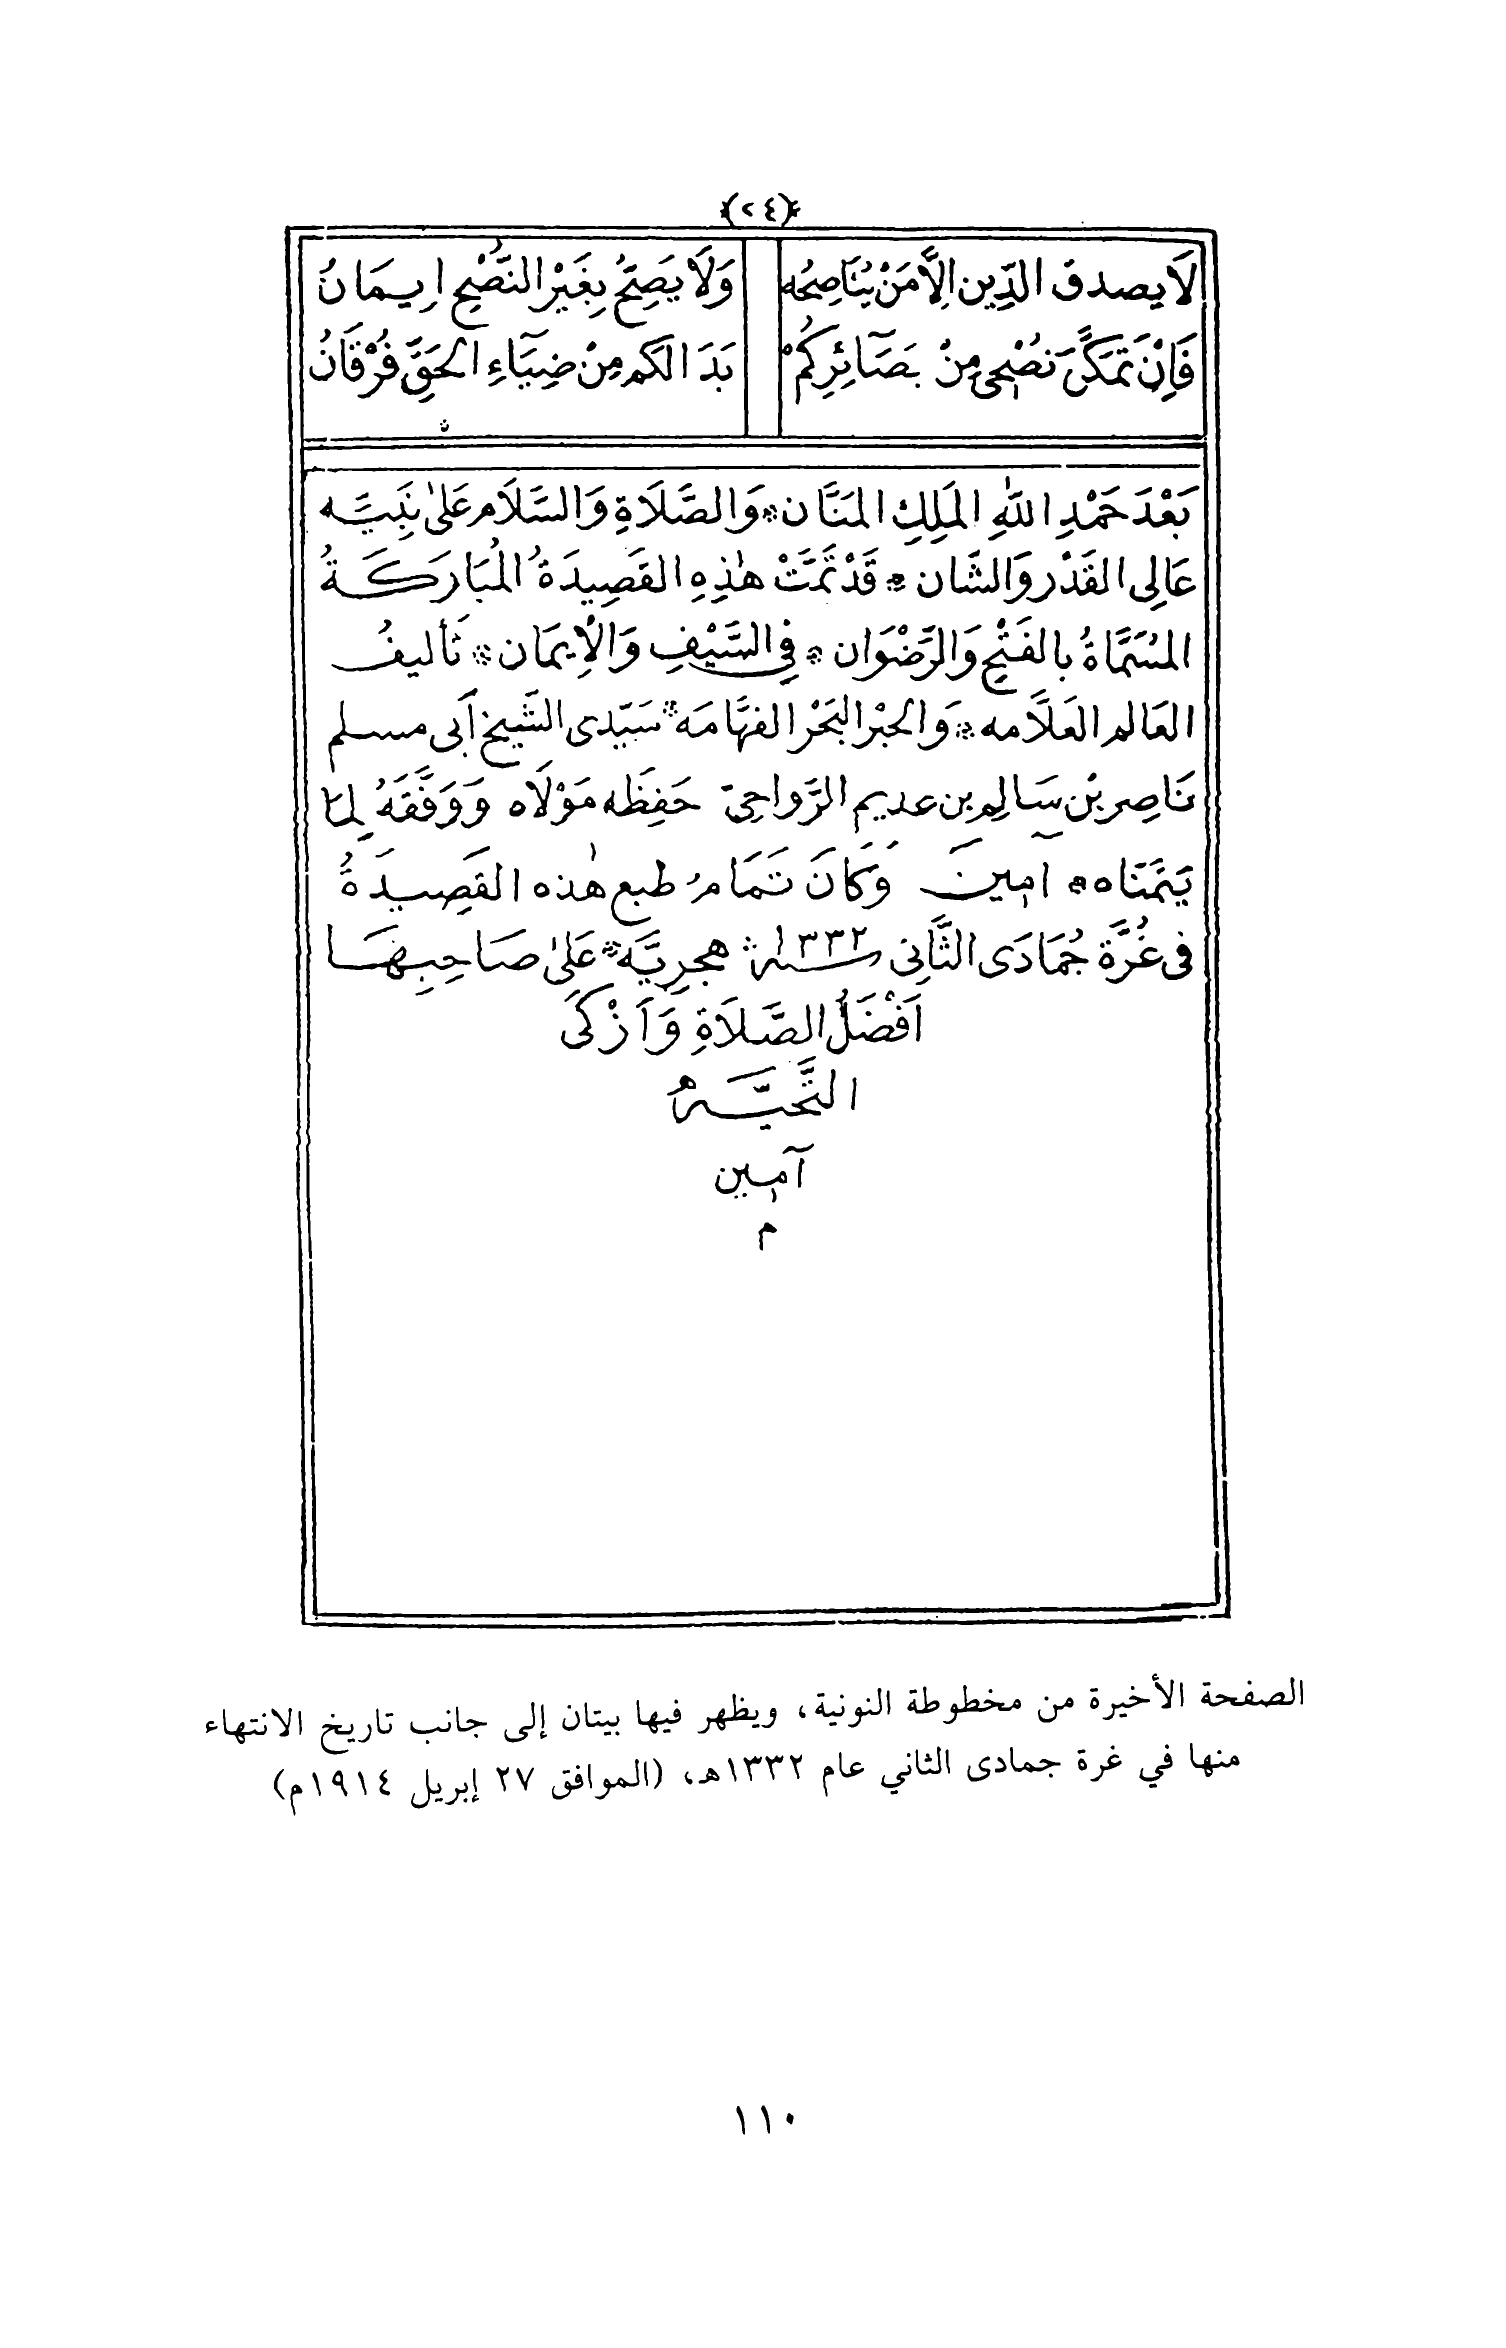 (٢٤)
لَا يصدق الدِّين اِلَّا مَنْ يُنَاصِحُه وَلَا يَصِحُّ بِغَيْرِ النُّصْحِ اِيمَانُ
فَاِنْ تَمَكَّنَ نُصْحِى مِنْ بَصَآئِرِكُمْ بَدَا لكم مِنْ ضِيَاءِ الحَقِّ فُرْقَانُ
بَعْدَ حَمْدِ اللهِ المَلِكِ المَنَّان * وَالصَّلَاةِ وَالسَّلَام عَلىٰ نَبِيَّه
عَالِى القَدْر وَالشَّان * قَدْ تَمَّتْ هٰذِهِ القَصِيدَةُ المُبَارَكَةُ
المُسَمَّاةُ بالفَتْحِ وَالرَّضْوَان * فِى السَّيْفِ وَالْاِيمَان * تَأليفُ
العَالم العَلَّامه * وَالحَبْر البَحْر الفهَّامَه * سَيّدى الشَّيخ أَبى مسلم
نَاصِر بْن سَالِم بن عديم الرَّواحِىّ حَفِظَه مَوْلَاه وَوَفَّقَهُ لِمَا
يَتَمَنَّاه * اٰمِين وَكَانَ تَمَام طبع هٰذه القَصِيدَةُ
فى غُرَّة جُمَادَى الثَّانِى سنة ١٣٣٢ هجرِيَّه * عَلىٰ صَاحِبِهَا
اَفْضَلُ الصَّلَاةِ وَاَزْكَى
التَّحِيَّة
آمِين
م
الصفحة الأخيرة من مخطوطة النونية، ويظهر فيها بيتان إلى جانب تاريخ الانتهاء
منها في غرة جمادى الثاني عام ١٣٣٢هـ، (الموافق ٢٧ إبريل ١٩١٤م)
١١٠